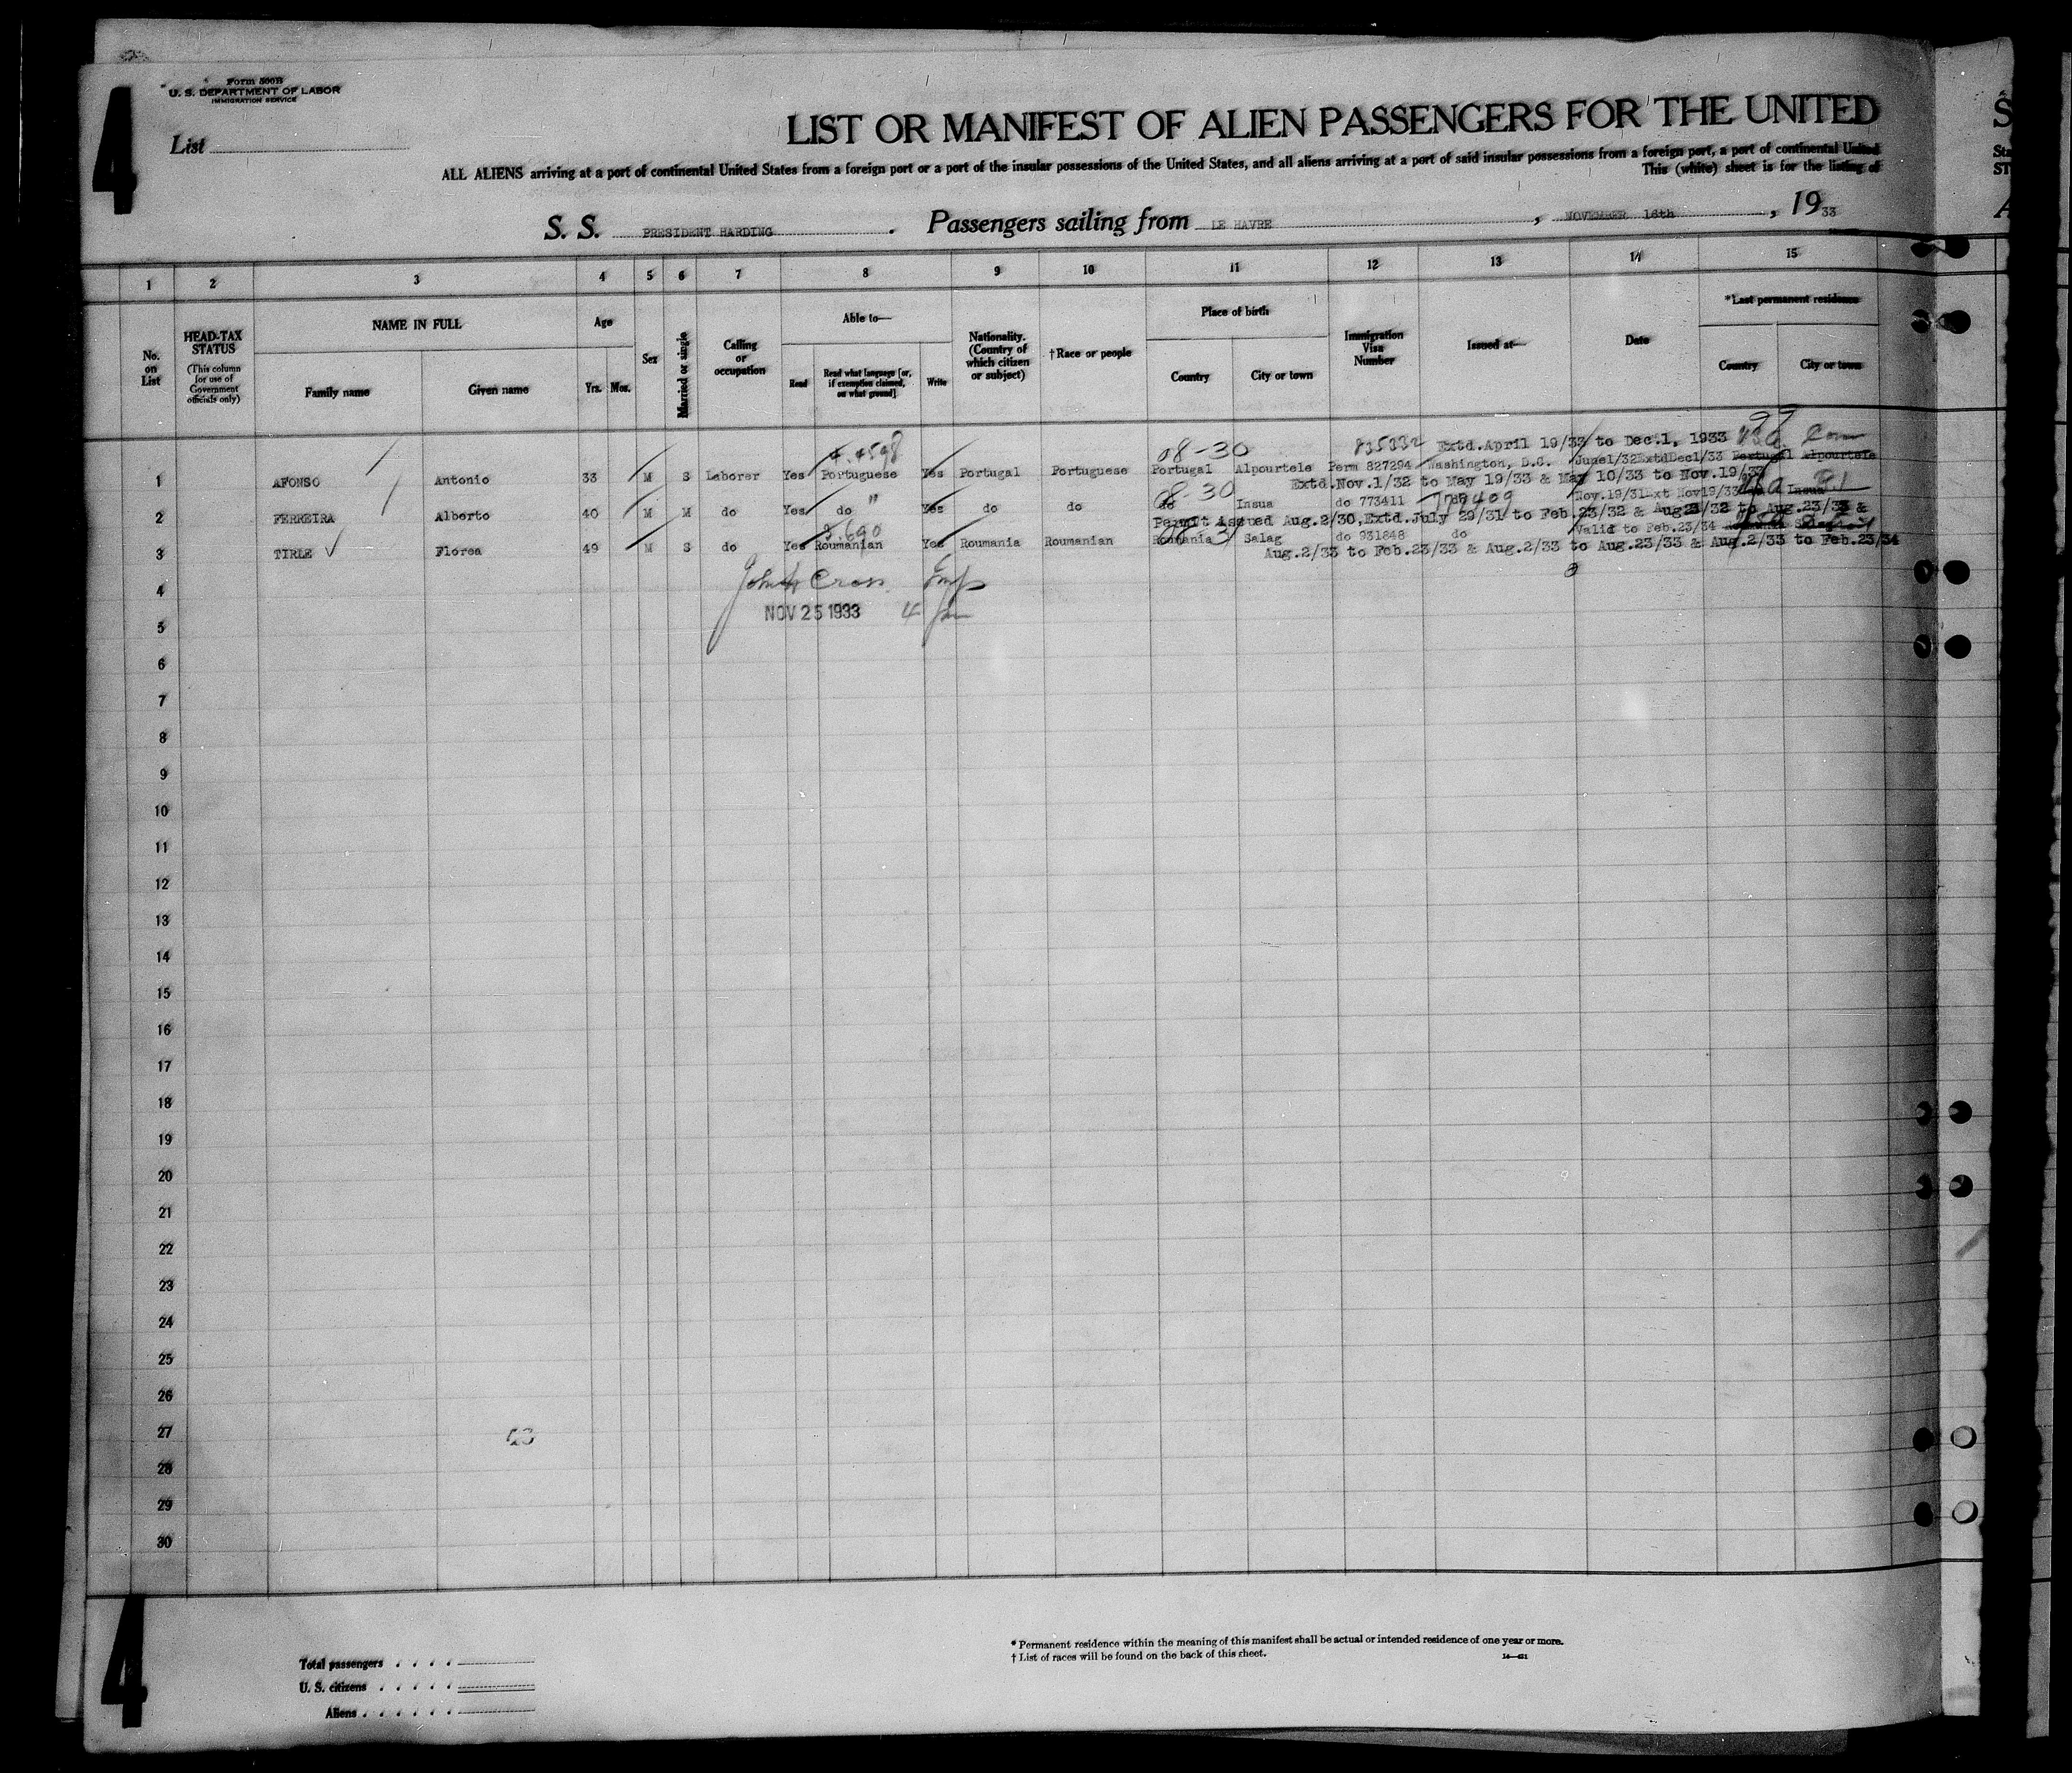 4
Form 500B
U. S. DEPARTMENT OF LABOR
IMMIGRATION SERVICE
List
LIST OR MANIFEST OF ALIEN PASSENGERS FOR THE UNITED
ALL ALIENS arriving at a port of continental United States from a foreign port or a port of the insular possessions of the United States, and all aliens arriving at a port of said insular possessions from a foreign port, a port of continental United
This (white) sheet is for the listing of
S. S. PRESIDENT HARDING . Passengers sailing from LE HAVRE , NOVEMBER 16th , 1933
1 2 3 4 5 6 7 8 9 10 11 12 13 14 15
No. on List
HEAD-TAX STATUS
(This column for use of Government officials only)
NAME IN FULL
Family name Given name
Age
Yrs. Mos.
Sex
Married or single
Calling or occupation
Able to—
Read
Read what language [or, if exemption claimed, on what ground]
Write
Nationality. (Country of which citizen or subject)
†Race or people
Place of birth
Country City or town
Immigration Visa Number
Issued at—
Date
*Last permanent residence
Country City or town
99
08-30 835332 Extd.April 19/33 to Dec.1, 1933
1 AFONSO Antonio 33 M S Laborer Yes Portuguese Yes Portugal Portuguese Portugal Alpourtele Perm 827294 Washington, D.C. June1/32ExtdDec1/33 Portugal Alpourtele
Extd.Nov.1/32 to May 19/33 & May 10/33 to Nov.19/33
08-30
2 FERREIRA Alberto 40 M M do Yes do " Yes do do do Insua do 773411 Nov.19/31Ext Nov19/33 Insua
Permit issued Aug.2/30,Extd.July 29/31 to Feb.23/32 & Aug 23/32 to Aug.23/33 &
3.690
3 TIRLE Florea 49 M S do Yes Roumanian Yes Roumania Roumanian Roumania Salag do 931848 do Valid to Feb.23/34
Aug.2/33 to Feb.23/33 & Aug.2/33 to Aug.23/33 & Aug.2/33 to Feb.23/34
4
NOV 25 1933
5
6
7
8
9
10
11
12
13
14
15
16
17
18
19
20
21
22
23
24
25
26
27
28
29
30
4
Total passengers
U. S. citizens
Aliens
* Permanent residence within the meaning of this manifest shall be actual or intended residence of one year or more.
† List of races will be found on the back of this sheet.